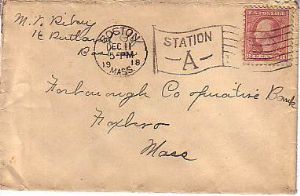 M. F. Ribuy
16 Rutland
Bos
BOSTON
DEC 11
5-PM
1918
MASS.
STATION
A
Foxborough Co-operative Bank
Foxboro
Mass